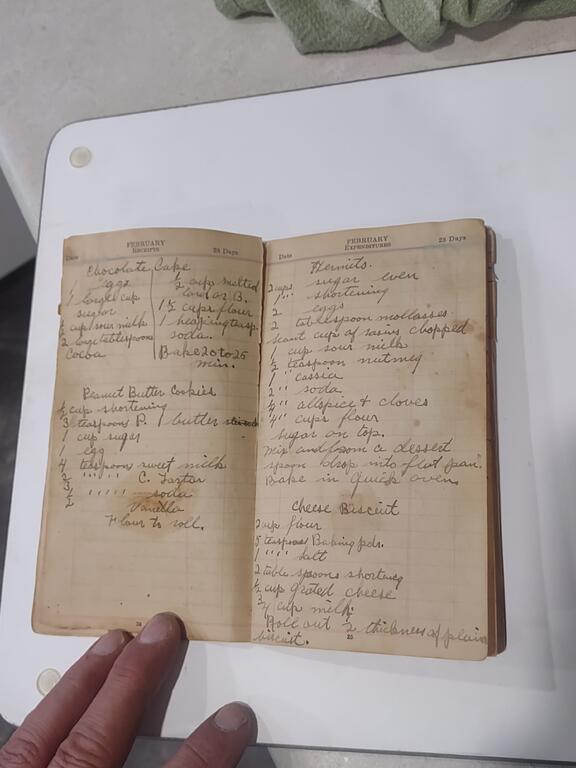 FEBRUARY
RECEIPTS
Date 28 Days
Chocolate Cake
eggs
1 large cup
sugar
cup sour milk
2 large tablespoons
cocoa
1/2 cup melted
lard or B.
1 1/2 cups flour
1 heaping teasp.
soda.
Bake 20 to 25
min.
Peanut Butter Cookies
1/2 cup shortening
3 teaspoons P. butter
1 cup sugar
1 egg
4 teaspoon sweet milk
" " " C. Tartar
1/2 " " " soda
Vanilla
Flour to roll.
FEBRUARY
EXPENDITURES
Date 28 Days
Hermits.
2 cups sugar even
1 " shortening
2 eggs
2 tablespoon mollasses
scant cup of raisins chopped
1 cup sour milk
1/2 teaspoon nutmeg
1 " cassia
2 " soda
1/4 " allspice & cloves
4 " cups flour
Sugar on top.
Mix and from a dessert
spoon drop into flat pan.
Bake in quick oven.
Cheese Biscuit
2 cup flour
5 teaspoons Baking pdr.
1 " " salt
2 table spoons shortening
1/2 cup grated cheese
3/4 cup milk.
Roll out 1/2 thickness of plain
biscuit.
25